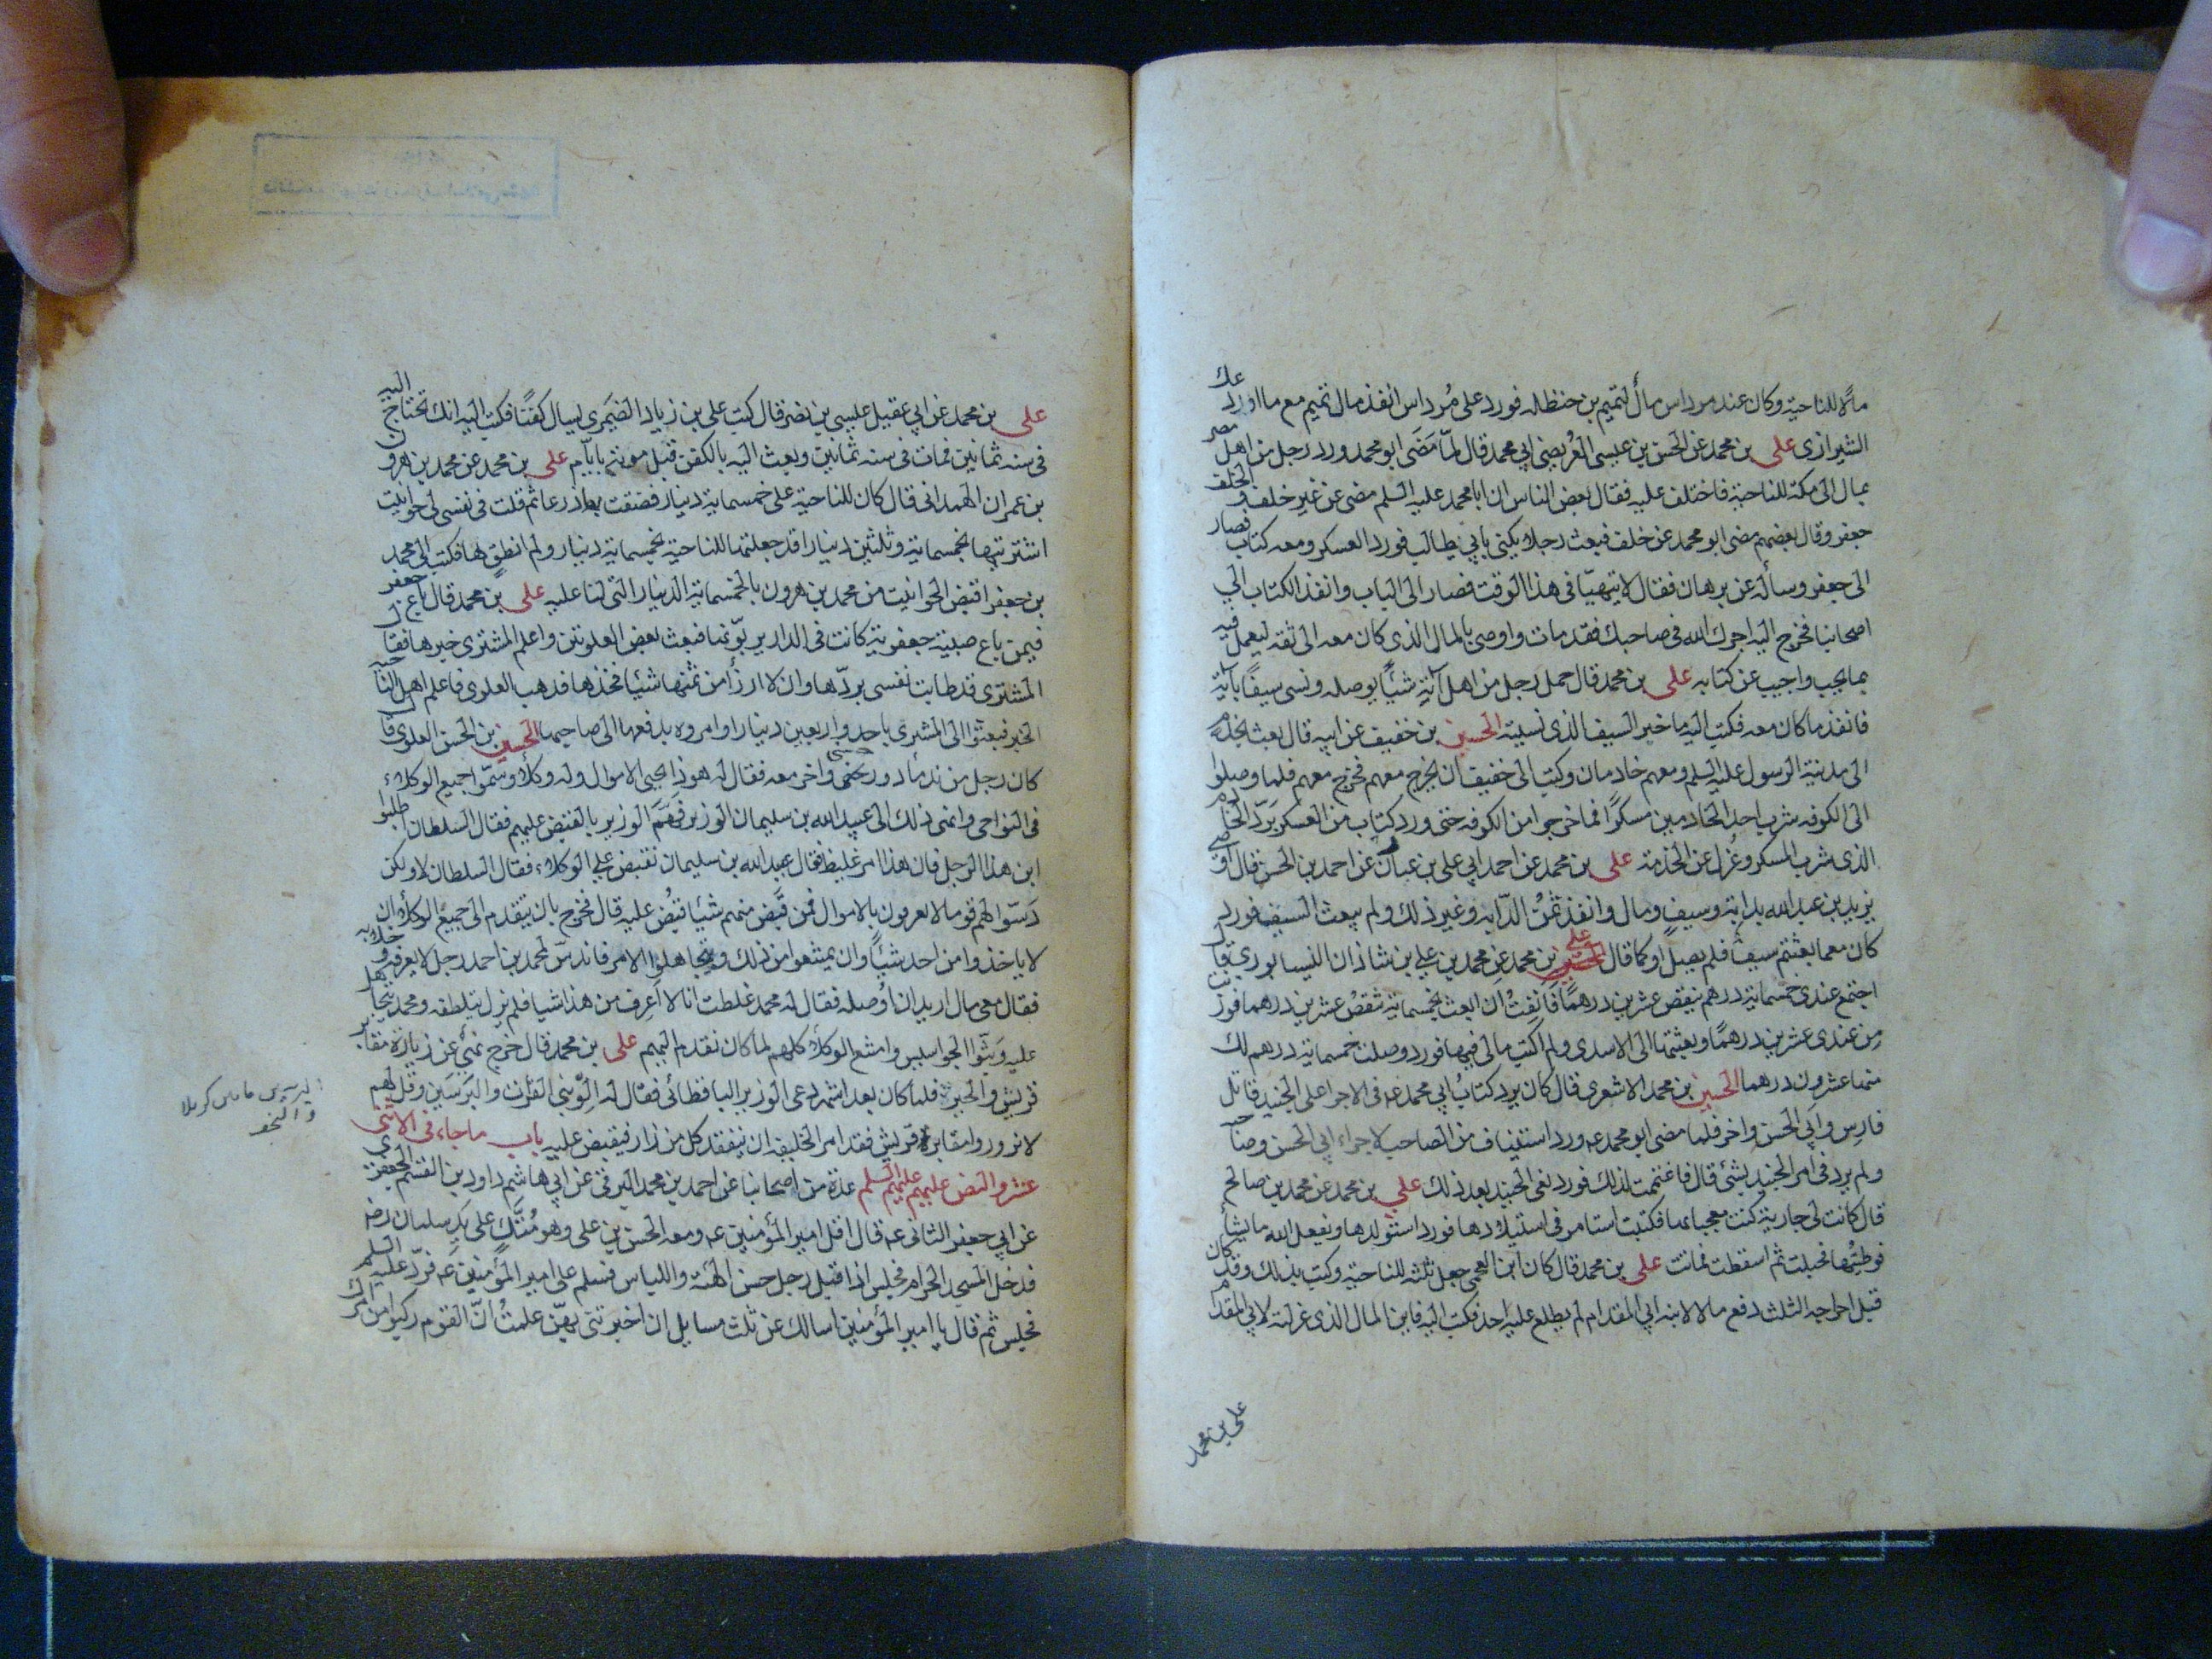 مالا للناحية وكان عند مرداس مال لتميم بن حنظله فورد على مرداس انفذ مال تميم مع ما اودعك
الشيرازى على بن محمد عن الحسن بن عيسى العريضى ابى محمد قال لما مضى ابو محمد ورد رجل من اهل مصر
بمال الى مكة للناحية فاختلف عليه فقال بعض الناس ان ابا محمد عليه السلم مضى عن غير خلف والخلف
جعفر وقال بعضهم مضى ابو محمد عن خلف فبعث رجلا يكنى بابى طالب فورد العسكر ومعه كتاب فصار
الى جعفر وسأله عن برهان فقال لا يتهيّا فى هذا الوقت فصار الى الباب وانفذ الكتاب الى
اصحابنا فخرج اليه اجرك الله فى صاحبك فقد مات واوصى بالمال الذى كان معه الى ثقه ليعمل فيه
بما يجب واجيب عن كتابه على بن محمد قال حمل رجل من اهل آبة شيئًا يوصله ونسى سيفًا بآبة
فانفذ ما كان معه فكتب اليه ما خبر السيف الذى نسيته الحسين بن خفيف عن ابيه قال بعث بخدم
الى مدينة الرسول عليه السلم ومعهم خادمان وكتب الى خفيف ان يخرج معهم فخرج معهم فلما وصلوا
الى الكوفه شرب احد الخادمين مسكرًا فما خرجوا من الكوفه حتى ورد كتاب من العسكر بردّ الخادم
الذى شرب المسكر وعُزل عن الخدمة على بن محمد عن احمد ابى على بن عباث عن احمد بن الحسن قال اوصى
يزيد بن عبد الله بدابة وسيف ومال وانفذ ثمن الدّابه وغير ذلك ولم يبعث السيف فورد
كان مع ما بعثتم سيف فلم يصل او كما قال على بن محمد عن محمد بن على بن شاذان النيسابورى قال
اجتمع عندى خمسماية درهم ينقص عشرين درهمًا فانِفتُ ان ابعث بخمسماية تنقصُ عشرين درهما فوزنت
مِن عندى عشرين درهمًا وبعثتها الى الاسدى ولم اكتب مالى فيها فورد وصلت خمسماية درهم لك
منها عشرون درهما الحسين بن محمد الاشعرى قال كان يرد كتابُ ابى محمد عم فى الاجرا على الجنيد قاتل
فارِس وابى الحسن واخر فلما مضى ابو محمد عم ورد استيناف من الصاحب لاجراء ابى الحسن وصاحبه
ولم يرد فى امر الجنيد بشئ قال فاغتممت لذلك فورد نعى الجنيد بعد ذلك على بن محمد عن محمد بن صالح
قال كانت لى جارية كنت معجبا بها فكتبت استامر فى استيلادها فورد استولدها ويفعل الله ما يشأ
فوطئتها فحبلت ثم اسقطت فماتت على بن محمد قال كان ابن العجمى جعل ثلثه للناحية وكتب بذلك وقد كان
قبل اخراجه الثلث دفع مالا لابنه ابى المقدام لم يطلع عليه احد فكتب اليه فاين المال الذى عزلته لابى المقدام
على بن محمد
على بن محمد عن ابى عقيل عيسى بن نصر قال كتب على بن زياد الصَيمَرى يسال كفنًا فكتب اليه انك تحتاج اليه
فى سنه ثمانين فمات فى سنه ثمانين وبعث اليه بالكفن قبل موته بايّام على بن محمد عن محمد بن هرون
بن عمران الهمدانى قال كان للناحية على خمسماية دينار فضقت بها ذرعا ثم قلت فى نفسى لى حوانيت
اشتريتها بخمسماية وثلثين دينارا قد جعلتها للناحية بخمسماية دينار ولم انطق بها فكتب الى محمد
بن جعفر اقبض الحوانيت من محمد بن هرون بالخمسماية الدينار التى لنا عليه على بن محمد قال باع جعفر
فيمن باع صبية جعفرية كانت فى الدار يربّونها فبعث بعض العلويّين واعلم المشترى خبرها فقال
المشترى قد طابت نفسى بردّها وان لا ارزأ من ثمنها شيئا فخذها فذهب العلوى فاعلم اهل الناحيه
الخبر فبعثوا الى المشترى باحد واربعين دينارا وامروه بدفعها الى صاحبها الحسين بن الحسن العلوى قال
كان رجل من ندمأ روز حسنى واخر معه فقال له هوذا يجبى الاموال وله وكلأ وسمّوا جميع الوكلاء
فى النواحى وانهى ذلك الى عبيد الله بن سليمان الوزير فهَمّ الوزير بالقبض عليهم فقال السلطان اطلبوا
اين هذا الرجل فان هذا امر غليظ فقال عبيد الله بن سليمان نقبض على الوكلاء فقال السلطان لا ولكن
دَسّوا لهم قوما لا يعرفون بالاموال فمن قبَض منهم شيئا قبُض عليه قال فخرج بان يتقدم الى جميع الوكلأ ان
لا ياخذوا من احد شيئًا وان يمتنعوا من ذلك ويتجاهلوا الامر فاندسّ لمحمد بن احمد رجل لا يعرفه وخلا به
فقال معى مال اريد ان اُوصله فقال له محمد غلطت انا لا اعرِف من هذا شيا فلم يزل يتلطفه ومحمد يتجاهل
عليه وبثّوا الجواسيس وامتنع الوكلأ كلهم لما كان تقدم اليهم على بن محمد قال خرج نهى عن زيارة مقابر
قريش والحير فلما كان بعد اشهر دعى الوزير الباقطائى فقال له الق بنى الفرات والبرسيّين وقل لهم
لا تزوروا مقابر قريش فقد امر الخليفه ان يتفقد كل من زار فيقبض عليه باب ما جاء فى الاثنى
عشر والنص عليهم عليهم السلم عدة من اصحابنا عن احمد بن محمد البرقى عن ابى هاشم داود بن القسم الجعفرى
عن ابى جعفر الثانى عم قال اقبل امير المؤمنين عم ومعه الحسن بن على وهو مُتّكٍ على يد سلمان رضه
فدخل المسجد الحرام فجلس اذ اقبل رجل حسن الهيئة واللباس فسلم على امير المؤمنين عم فردّ عليه السلم
فجلس ثم قال يا امير المؤمنين اسالك عن ثلث مسايل ان اخبرتنى بهنّ علمتُ انّ القوم ركبوا من امرك